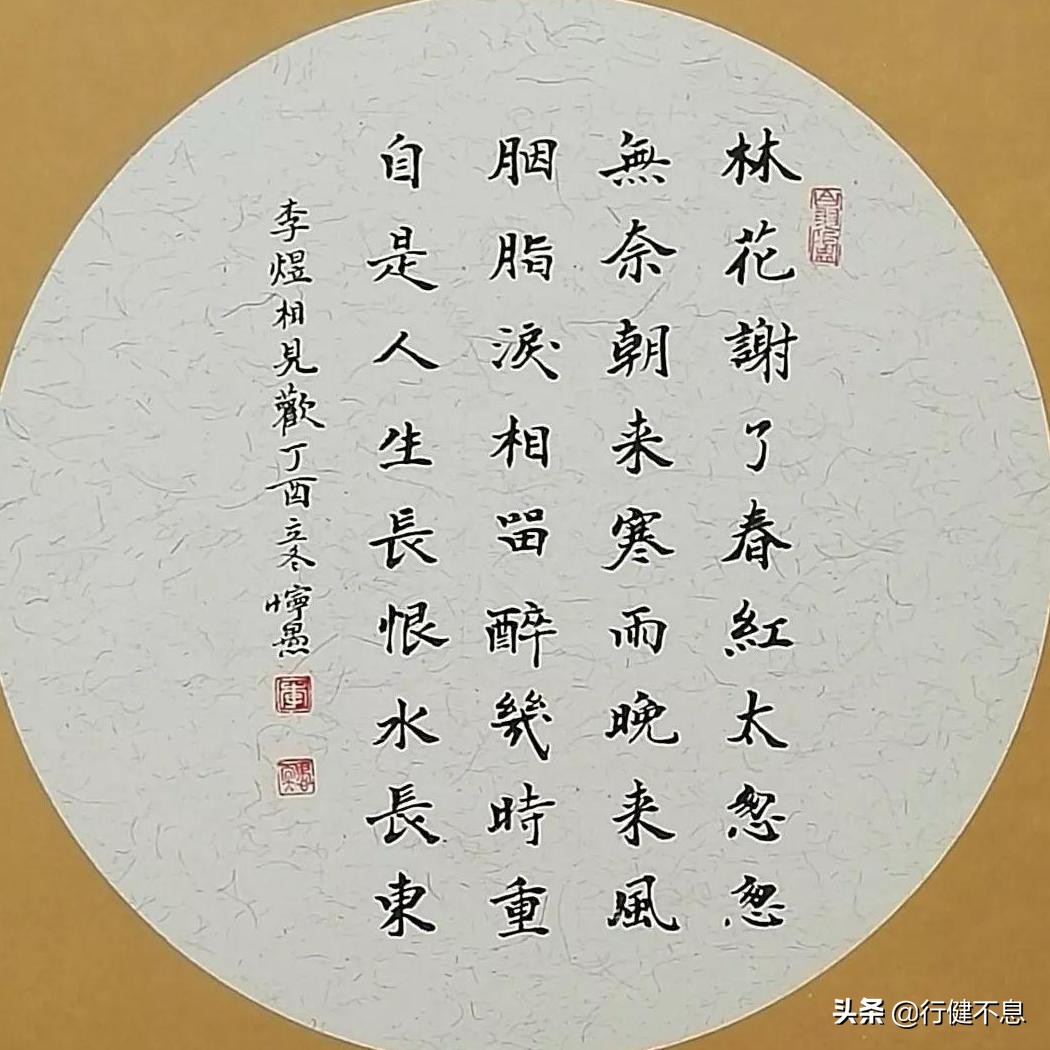 林花謝了春紅太怱怱
無奈朝来寒雨晚来風
胭脂淚相留醉幾時重
自是人生長恨水長東
李煜相見歡丁酉立冬懧愚
头条 @行健不息